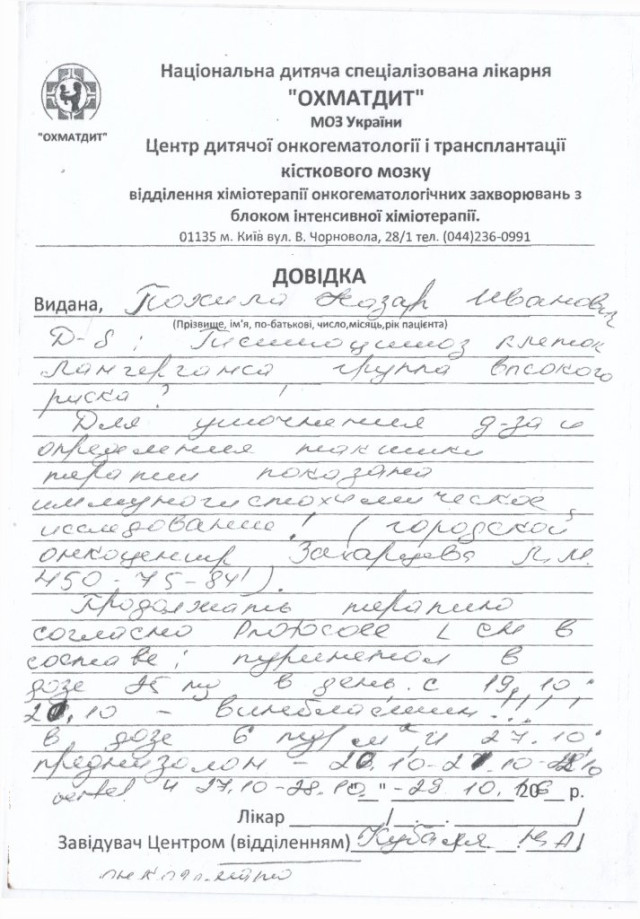 "ОХМАТДИТ"
Національна дитяча спеціалізована лікарня
"ОХМАТДИТ"
МОЗ України
Центр дитячої онкогематології і трансплантації
кісткового мозку
відділення хіміотерапії онкогематологічних захворювань з
блоком інтенсивної хіміотерапії.
01135 м. Київ вул. В. Чорновола, 28/1 тел. (044)236-0991
ДОВІДКА
Видана, Назар Иванович
(Прізвище, ім'я, по-батькові, число,місяць,рік пацієнта)
Д-з: Гистиоцитоз клеток
Лангерганса группа высокого
риска?
Для уточнения д-за и
определения тактики
терапии показано
иммуногистохимическое
исследование! (городской
онкоцентр Захарцева Л.М.
450-75-84!).
Продолжать терапию
согласно Protocol LCH в
составе: пуринетол в
дозе 25 мг в день с 19.10
.10 - винбластин
в дозе 6 и 27.10
преднизолон -
и 27.10-28.10 -29.10. "__" 20 р.
Лікар
Завідувач Центром (відділенням)